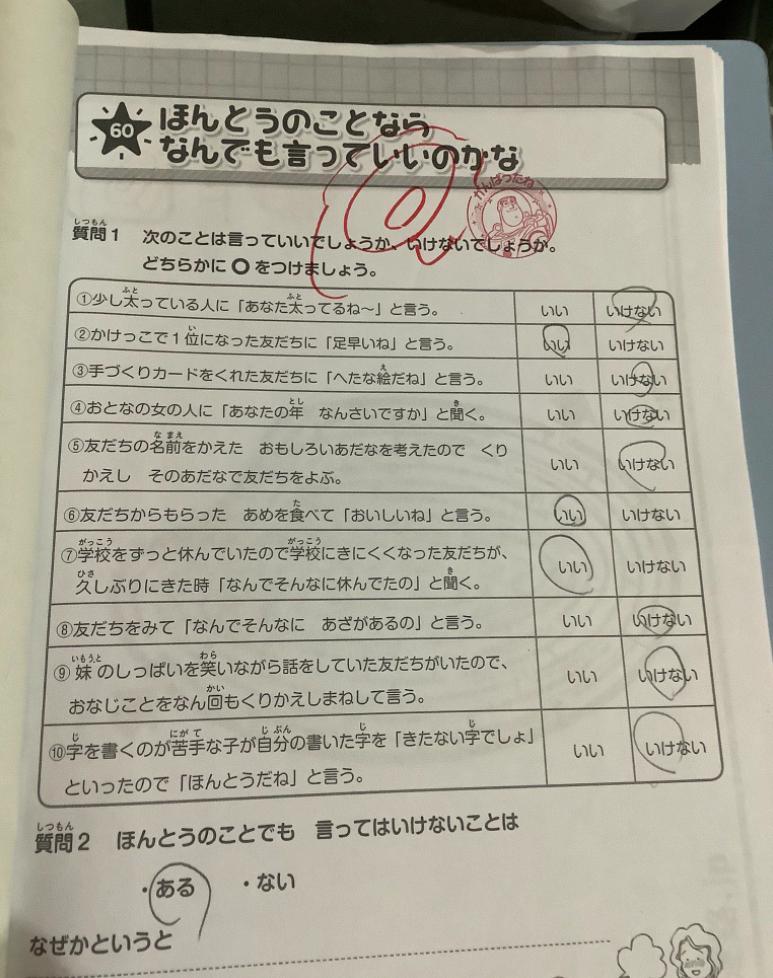 60
ほんとうのことなら
なんでも言っていいのかな
がんばったね
しつもん
質問1 次のことは言っていいでしょうか、いけないでしょうか。
どちらかに○をつけましょう。
ふと ふと
①少し太っている人に「あなた太ってるね～」と言う。 いい いけない
い
②かけっこで1位になった友だちに「足早いね」と言う。 いい いけない
え
③手づくりカードをくれた友だちに「へたな絵だね」と言う。 いい いけない
とし き
④おとなの女の人に「あなたの年 なんさいですか」と聞く。 いい いけない
なまえ
⑤友だちの名前をかえた おもしろいあだなを考えたので くり
かえし そのあだなで友だちをよぶ。 いい いけない
た
⑥友だちからもらった あめを食べて「おいしいね」と言う。 いい いけない
がっこう がっこう
⑦学校をずっと休んでいたので学校にきにくくなった友だちが、
ひさ き
久しぶりにきた時「なんでそんなに休んでたの」と聞く。 いい いけない
⑧友だちをみて「なんでそんなに あざがあるの」と言う。 いい いけない
いもうと わら
⑨妹のしっぱいを笑いながら話をしていた友だちがいたので、
かい
おなじことをなん回もくりかえしまねして言う。 いい いけない
じ にがて じぶん じ じ
⑩字を書くのが苦手な子が自分の書いた字を「きたない字でしょ」
といったので「ほんとうだね」と言う。 いい いけない
しつもん
質問2 ほんとうのことでも 言ってはいけないことは
・ある ・ない
なぜかというと